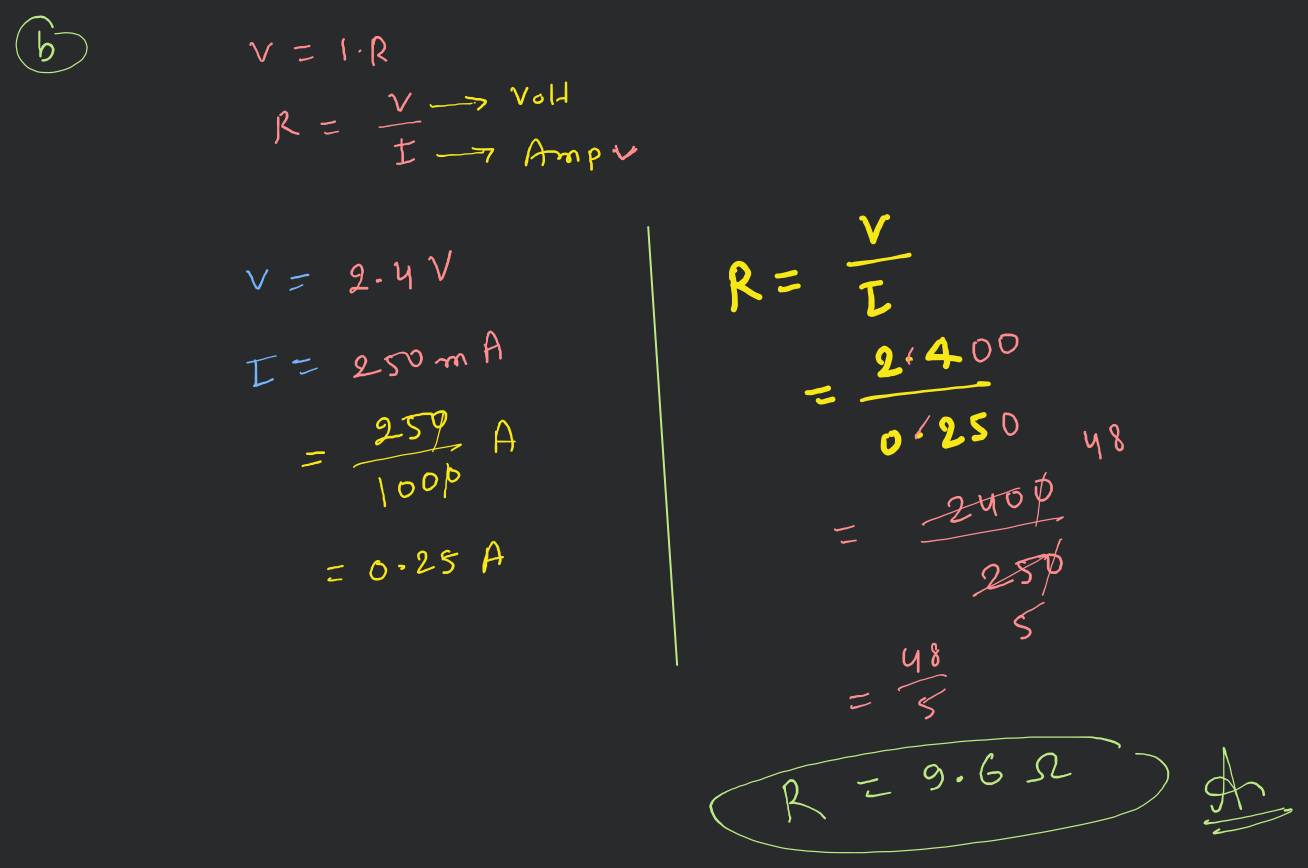 b
V = I·R
R = V/I
V → Volt
I → Amp ✓
V = 2.4 V
I = 250 m A
= 250/1000 A
= 0.25 A
R = V/I
= 2.400/0.250
= 2400/250
48
5
= 48/5
R = 9.6 Ω
A